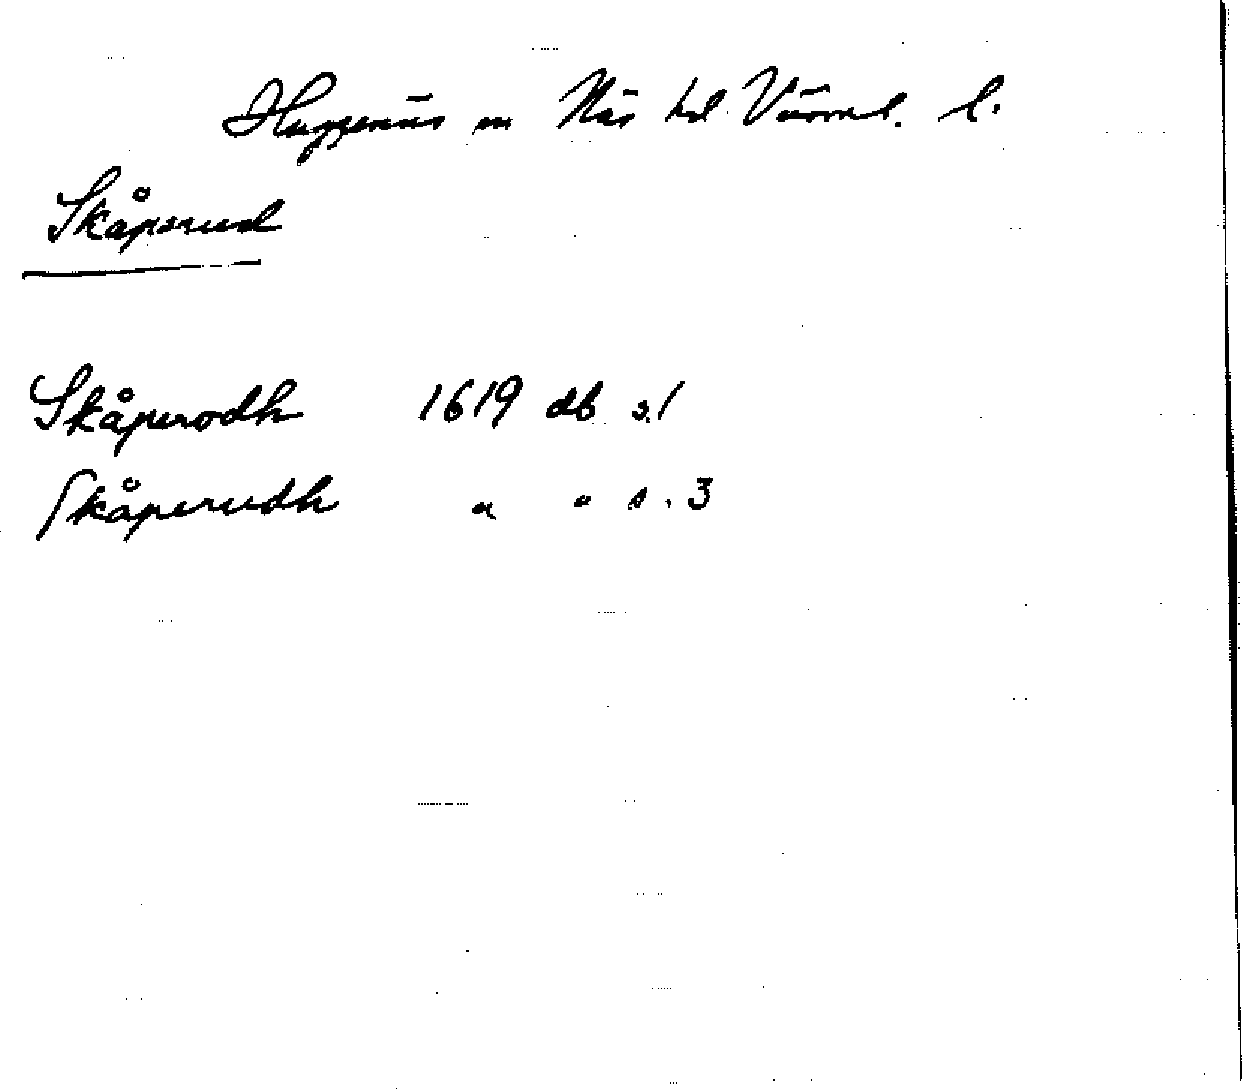 Huggenäs sn Näs hd Värml. l.
Skåpsrud
Skåperodh 1619 db s. 1
Skåperudh " " s. 3